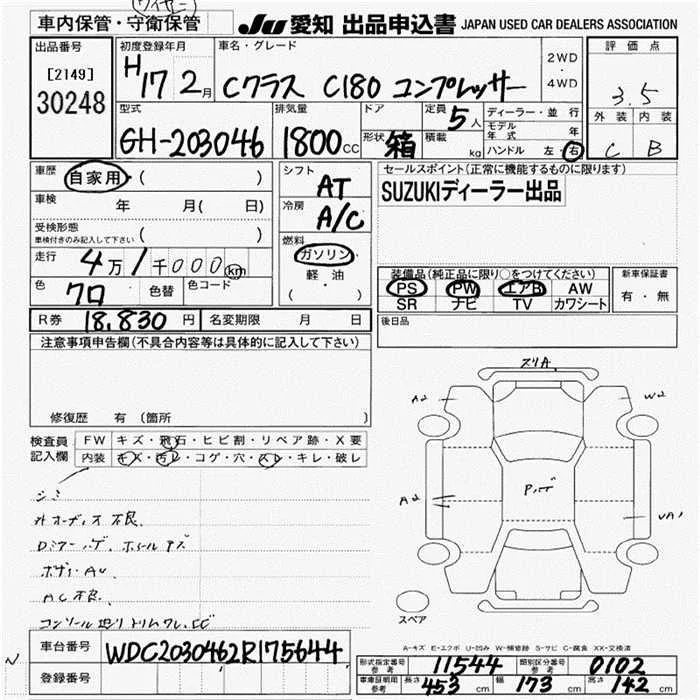 車内保管・守衛保管
JU 愛知 出品申込書 JAPAN USED CAR DEALERS ASSOCIATION
出品番号
[2149]
30248
初度登録年月
H17 2月
車名・グレード
Cクラス C180 コンプレッサー
2WD
・
4WD
評価点
3.5
外装 内装
C B
型式
GH-203046
排気量
1800CC
ドア
形状 箱
定員 5人
積載 kg
ディーラー・並行
モデル年式 年
ハンドル 左・右
車歴 自家用・( )
車検 年 月( 日)
受検形態
車検付きのみ記入して下さい ( )
走行 4万1千000km
色 クロ 色替 色コード
R券 18,830円 名変期限 月 日
シフト
AT
冷房
A/C
燃料
ガソリン
軽・油
( ・ )
セールスポイント(正常に機能するものに限ります)
SUZUKIディーラー出品
装備品(純正品に限り○をつけてください)
PS PW エアB AW
SR ナビ TV カワシート
新車保証書
有・無
後日品
注意事項申告欄(不具合内容等は具体的に記入して下さい)
修復歴 有(箇所
検査員記入欄
FW キズ・飛石・ヒビ割・リペア跡・X要
内装 キズ・汚レ・コゲ・穴・スレ・キレ・破レ
シミ
外オーディオ不良
Dミラーハゲ ホイールキズ
AC不良
スリA
A2
W2
A2
スペア
A-キズ E-エクボ U-凹み W-補修跡 S-サビ C-腐食 XX-交換済
車台番号 WDC2030462R175644
登録番号
型式指定番号 参考 11544 類別区分番号 参考 0102
車庫証明用 参考 長さ 453cm 幅 173cm 高さ 142cm